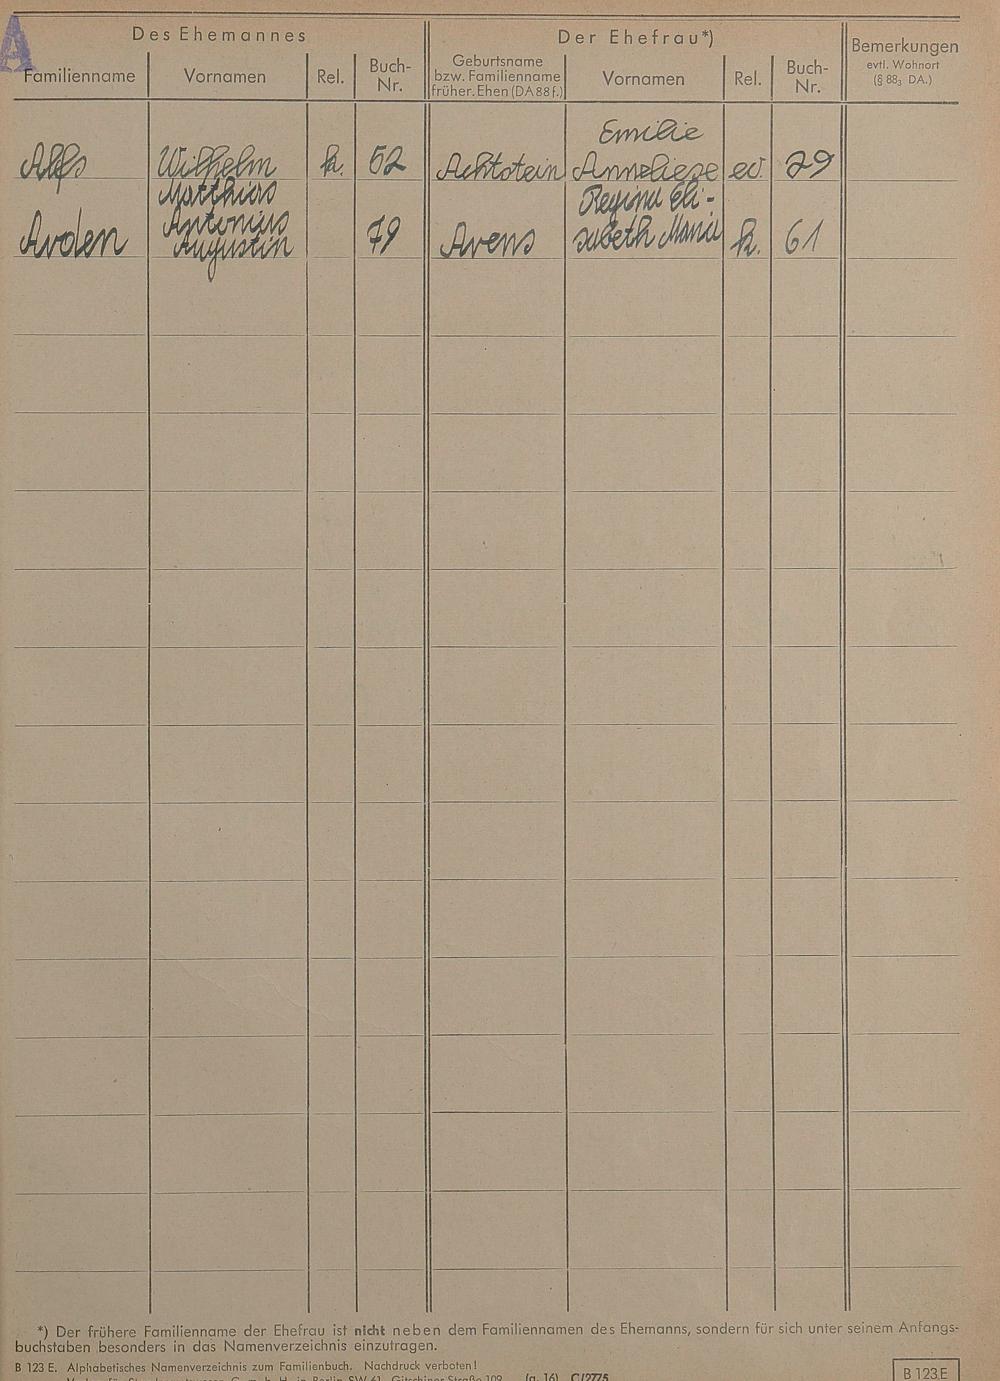 A
Des Ehemannes
Der Ehefrau*)
Bemerkungen
evtl. Wohnort
(§ 88₃ DA.)
Familienname
Vornamen
Rel.
Buch-
Nr.
Geburtsname
bzw. Familienname
früher. Ehen (DA 88 f.)
Vornamen
Rel.
Buch-
Nr.
Emilie
Alfs Wilhelm k. 52 Achtstein Anneliese ev. 29
Matthias Regina Eli-
Antonius
Arden Augustin 79 Arens sabeth Maria k. 61
*) Der frühere Familienname der Ehefrau ist nicht neben dem Familiennamen des Ehemanns, sondern für sich unter seinem Anfangs-
buchstaben besonders in das Namenverzeichnis einzutragen.
B 123 E. Alphabetisches Namenverzeichnis zum Familienbuch. Nachdruck verboten!
in Berlin SW 61, Gitschiner Straße 109. (g. 16) C/2775
B 123 E